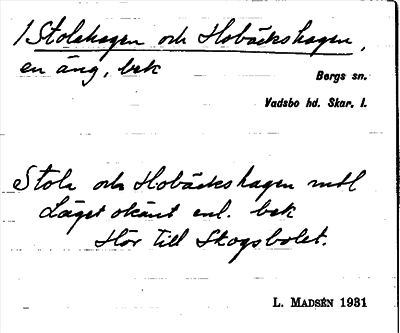 1 Stolahagen och Hobäckshagen,
en äng, bek
Bergs sn.
Vadsbo hd. Skar. l.
Stola och Hobäckshagen mtl
Läget okänt enl. bek
Hör till Skogsbolet.
L. MADSÉN 1931